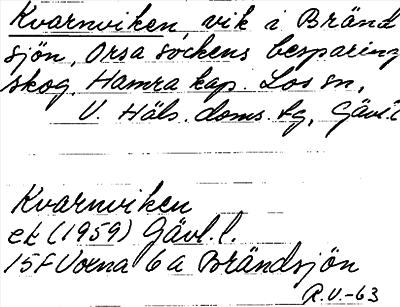 Kvarnviken vik i Bränd
sjön, Orsa sockens besparing
skog, Hamra kap. Los sn,
V. Häls. doms. fg, Gävl. l
Kvarnviken
ek (1959) Gävl. l.
15F Voxna 6a Brändsjön
R.V.-63